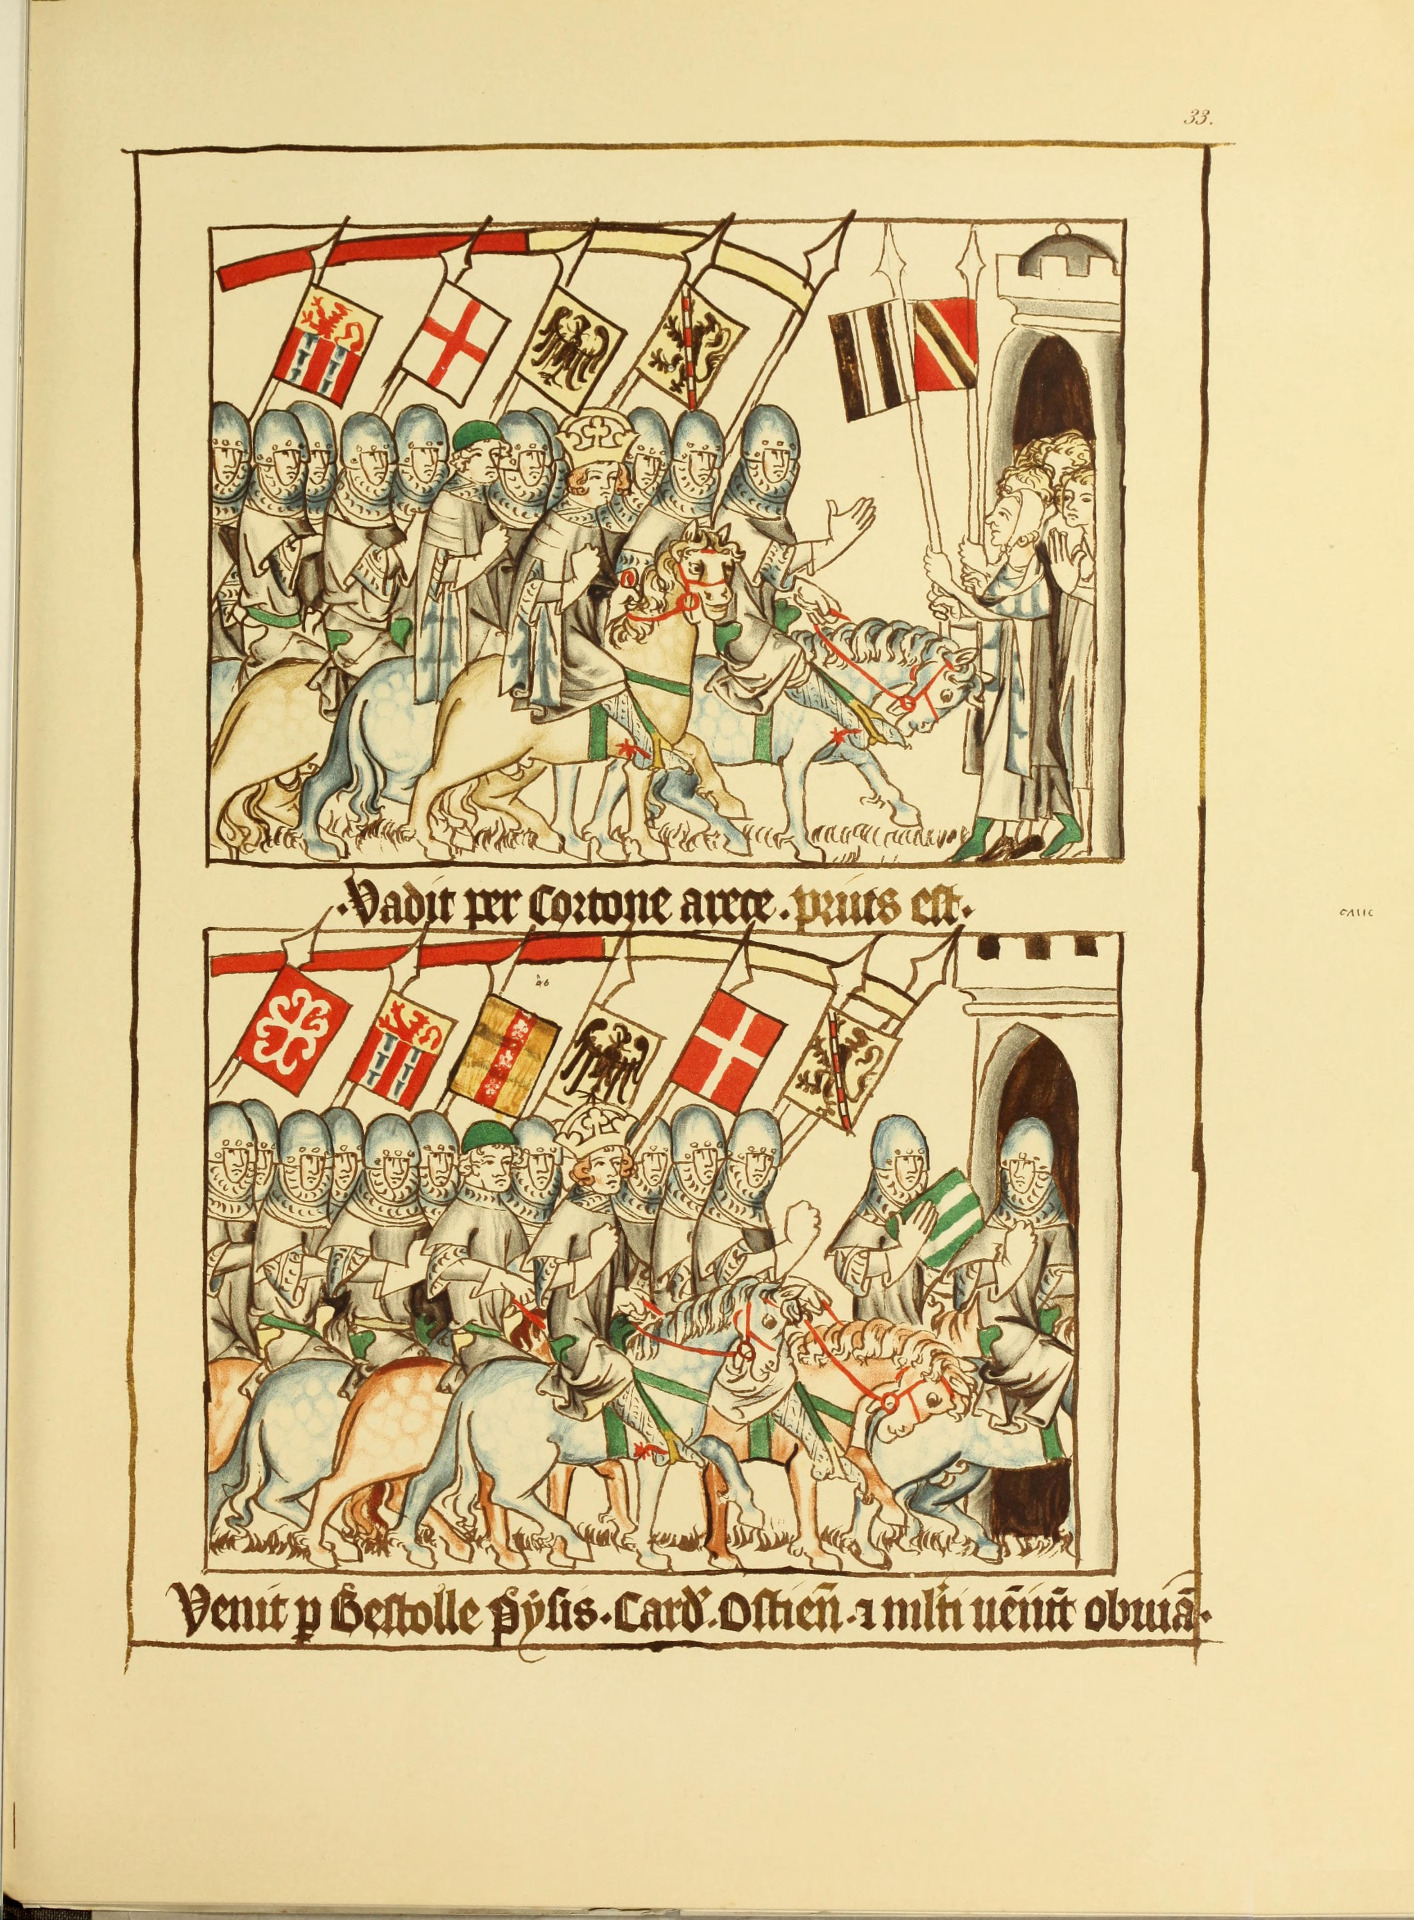 33.
·Vadit per Cortone arece. prius est.
Venit p Gestolle Pÿsis. Card'. Ostien̄. ⁊ mlti uēiūt obuiā.